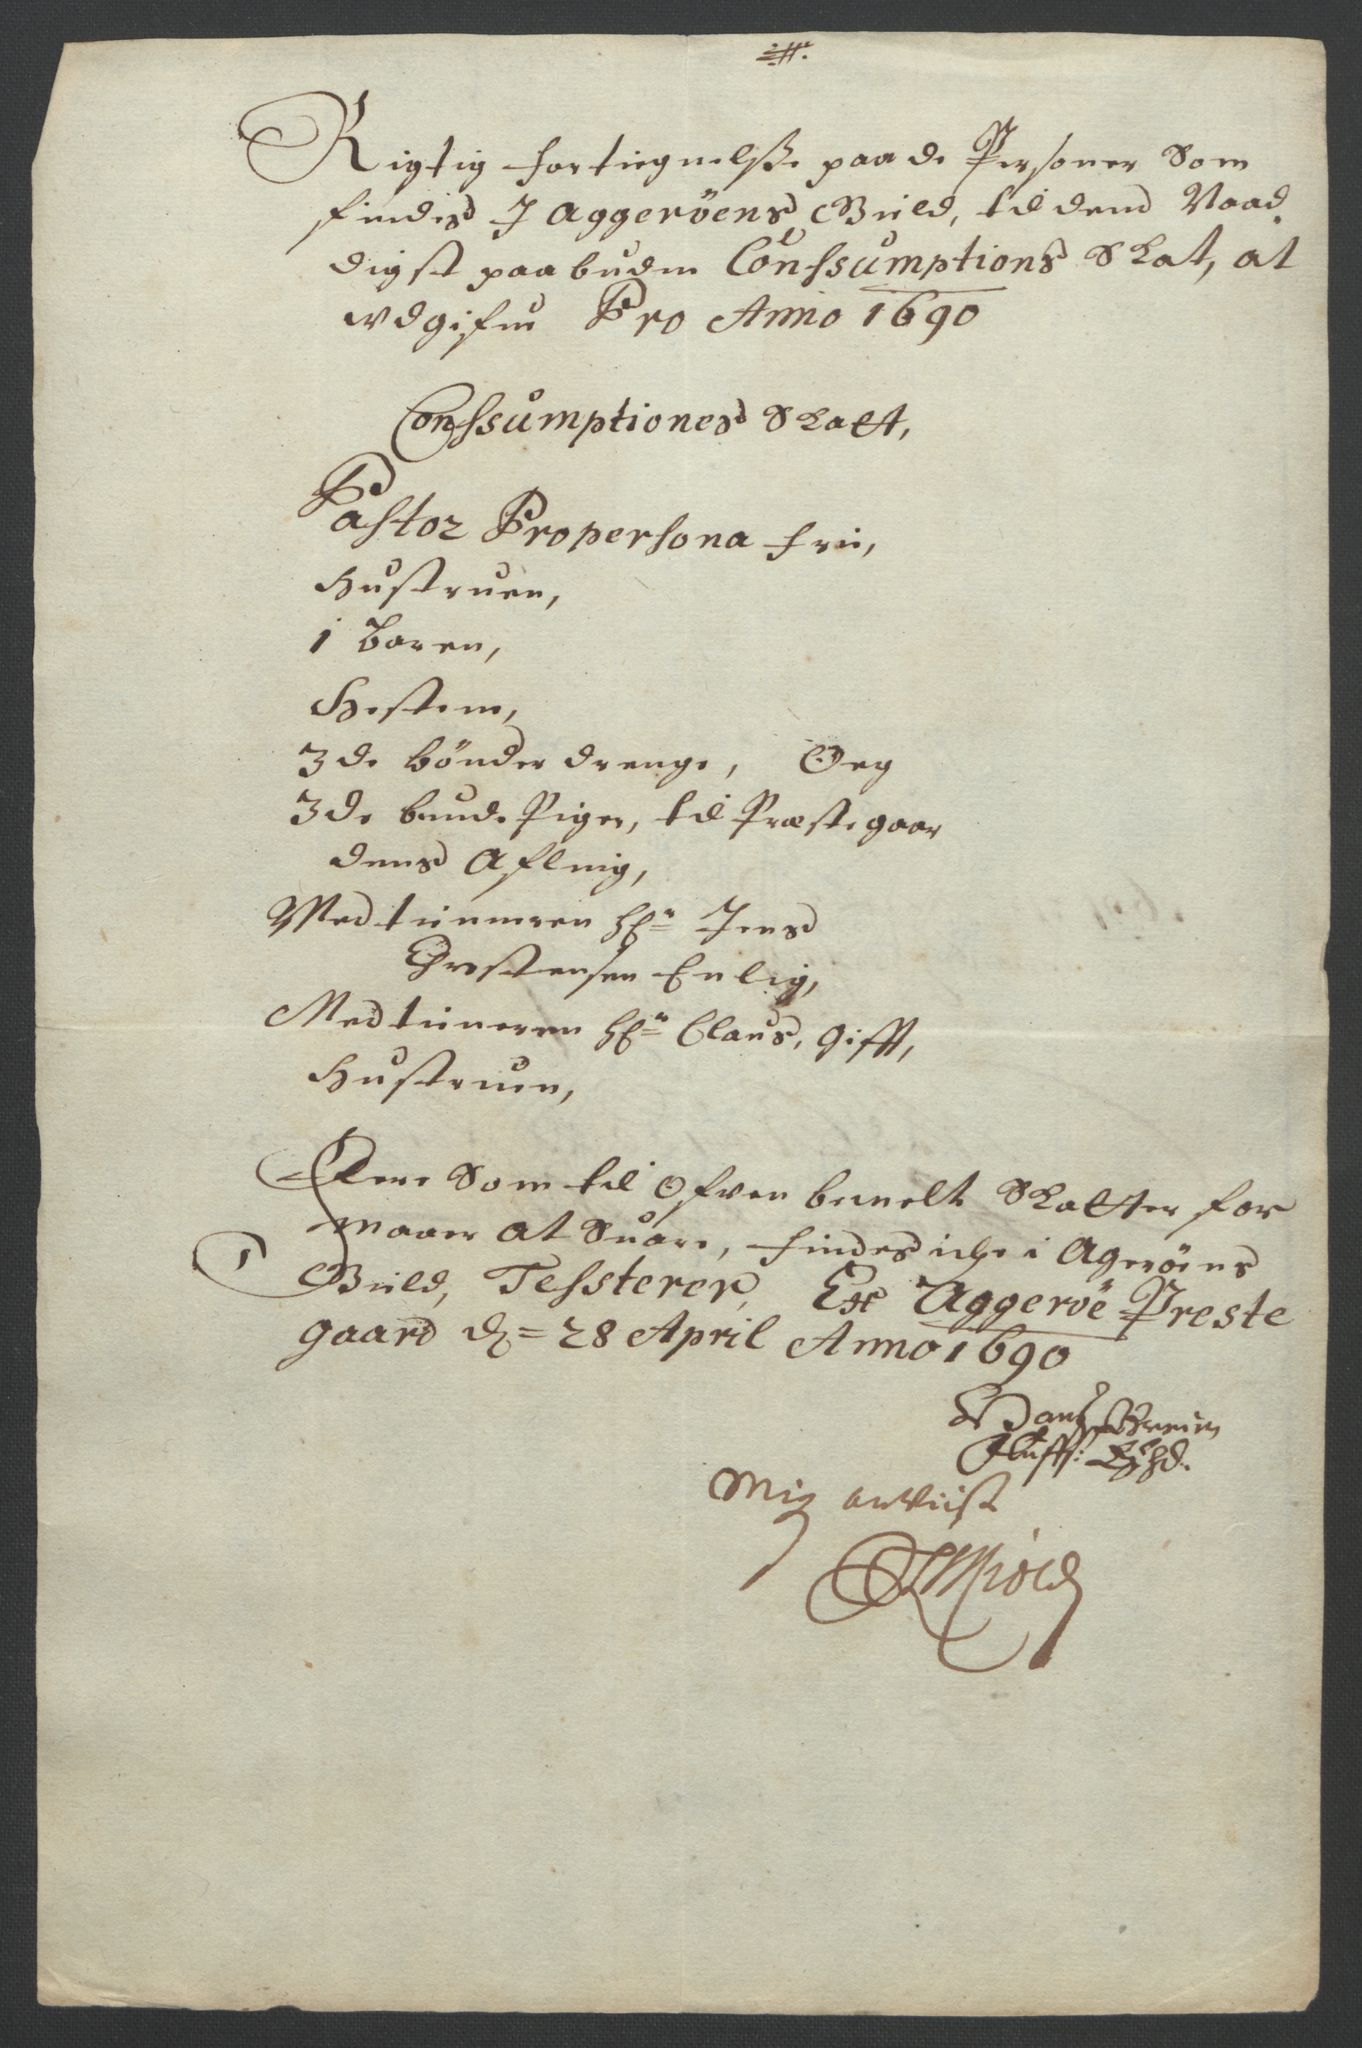 Rigtig fortiegnelsse paa de Personer Som
findis J Aggeröens Gield, til dend Naad
digst paabudne Conssumptions Skat, at
udgifue Pro Anno 1690
Conssumptiones Skatt,
Pastor Propersona frii,
Hustruen,
1 Baren,
Hesten,
3de bönder drenge, Oeg
3de bunde Piger, til Præstegaar
dens Afling,
Medtieneren Hr Jens
Christensen Enlig,
Medtieneren Hr Claus, gifft,
Hustruen,
Flere Som til Ofven bemelt Skatter for
maaer at Suare, findes iche i Ageröens
Gield, Tessterer, Ex Aggeröe Preste
gaard d = 28 April Anno 1690
Hans
Mig anviist